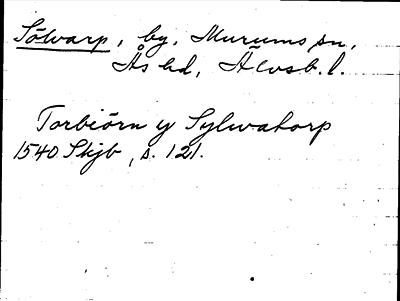 Sölvarp, by, Murums sn,
Ås hd, Älvsb. l.
Torbiörn y Sylwatorp
1540 Skjb, s. 121.